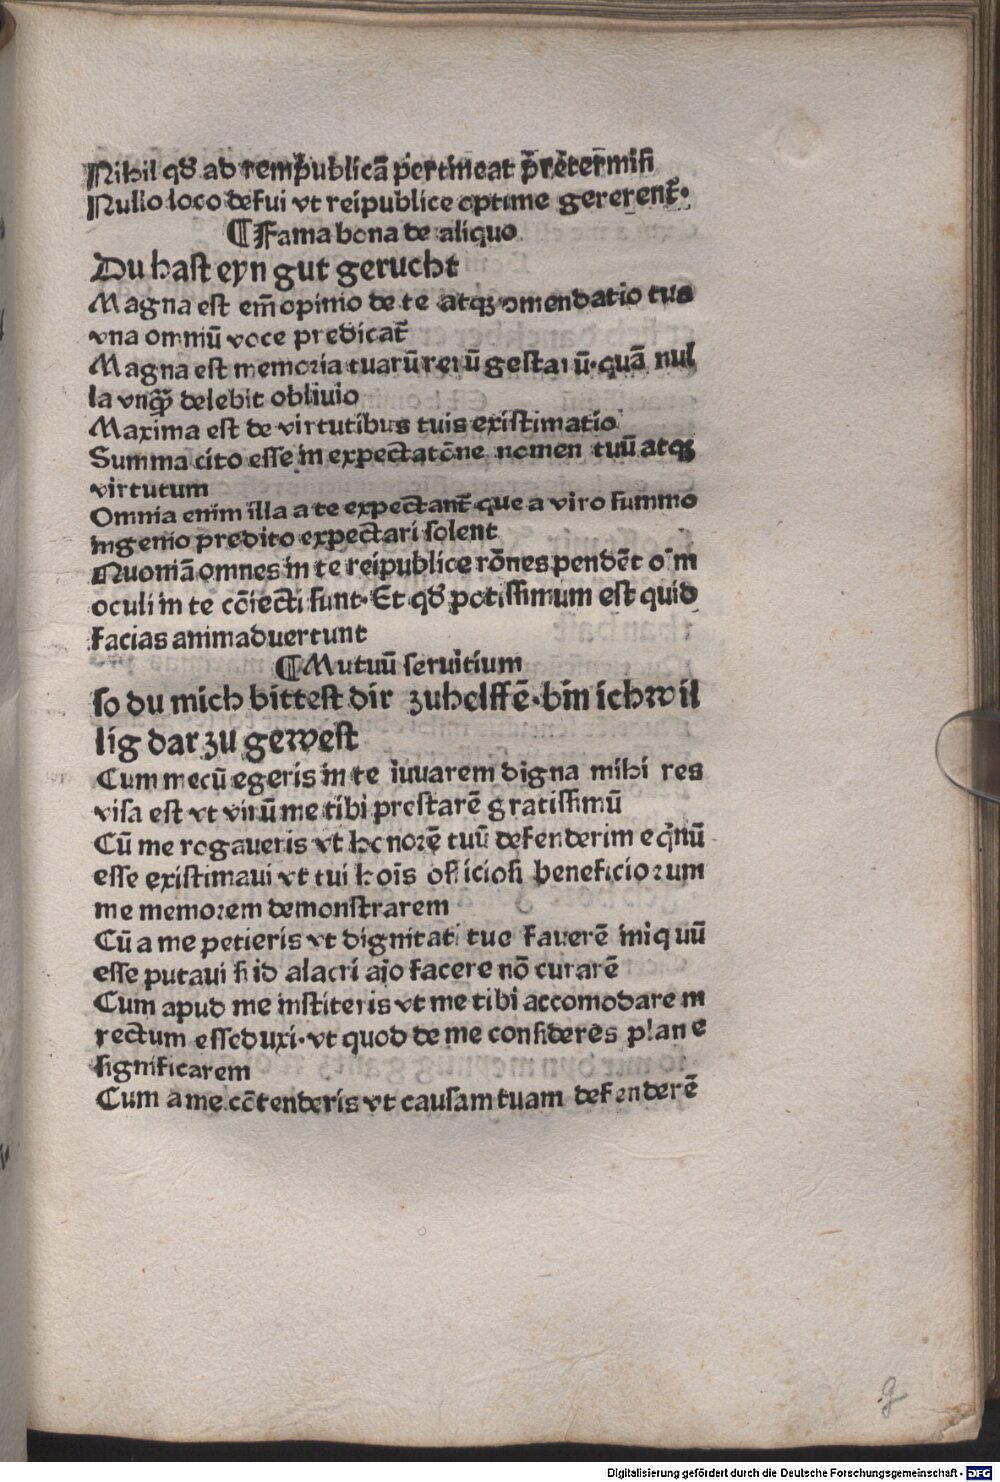 Nihil qđ ad remp̄ublicā ꝑertineat p̄retermiſi
Nullo loco defui vt reipublice optime gererent̄·
¶ Fama bona de aliquo
Du haſt eyn gut gerucht
Magna est em̄ opinio de te atqꝫ ꝯmendatio tua
vna omniū voce predicat̄
Magna est memoria tuarū rerū gestarū·quā nul
la vnqꝫ̄ delebit obliuio
Maxima est de virtutibus tuis exiſtimatio
Summa cito eſſe in expectatōne nomen tuū atqꝫ
virtutum
Omnia enim illa a te expectant̄ que a viro ſummo
ingenio predito expectari ſolent
Nuoniā omnes in te reipublice rōnes pendēt oīm
oculi in te cōiecti ſunt·Et qđ potiſſimum eſt quid
facias animaduertunt
¶ Mutuū ſeruitium
ſo du mich bitteſt dir zuhelffē·bin ich wil
lig dar zu geweſt
Cum mecū egeris in te iuuarem digna mihi res
viſa eſt vt virū me tibi preſtarē gratiſſimū
Cū me rogaueris vt honorē tuū defenderim eq̄nū
eſſe exiſtimaui vt tui hoīs officioſi beneficiorum
me memorem demonſtrarem
Cū a me petieris vt dignitati tue fauerē iniquū
eſſe putaui ſi id alacri aīo facere nō curarē
Cum apud me inſtiteris vt me tibi accomodarem
rectum eſſe duxi·vt quod de me conſideres plane
ſignificarem
Cum a me cōtenderis vt cauſam tuam defenderē
g
Digitalisierung gefördert durch die Deutsche Forschungsgemeinschaft - DFG